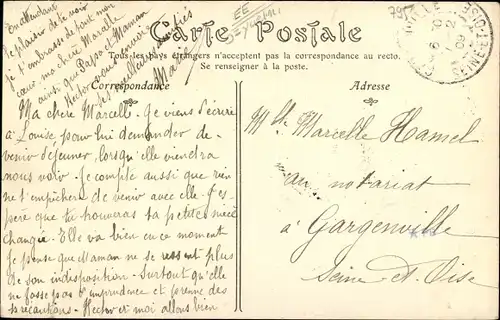 En attendant
le plaisir de te voir
je t'embrasse de tout mon
cœur ma chère Marcelle
ainsi que Papa et Maman
Hector vous envoie
ses meilleures amitiés
Marie
Carte Postale
Tous les pays étrangers n'acceptent pas la correspondance au recto.
Se renseigner à la poste.
Correspondance
Adresse
Ma chère Marcelle. Je viens d'écrire
à Louise pour lui demander de
venir déjeuner, lorsqu'elle viendra
nous voir. Je compte aussi que rien
ne t'empêchera de venir avec elle. J'es
père que tu trouveras ta petite nièce
changée. Elle va bien en ce moment
Je pense que Maman ne se ressent plus
de son indisposition. Surtout qu'elle
ne fasse pas d'imprudence et prenne des
précautions. Hector et moi allons bien
Mlle Marcelle Hamel
au notariat
à Gargenville
Seine et Oise
795